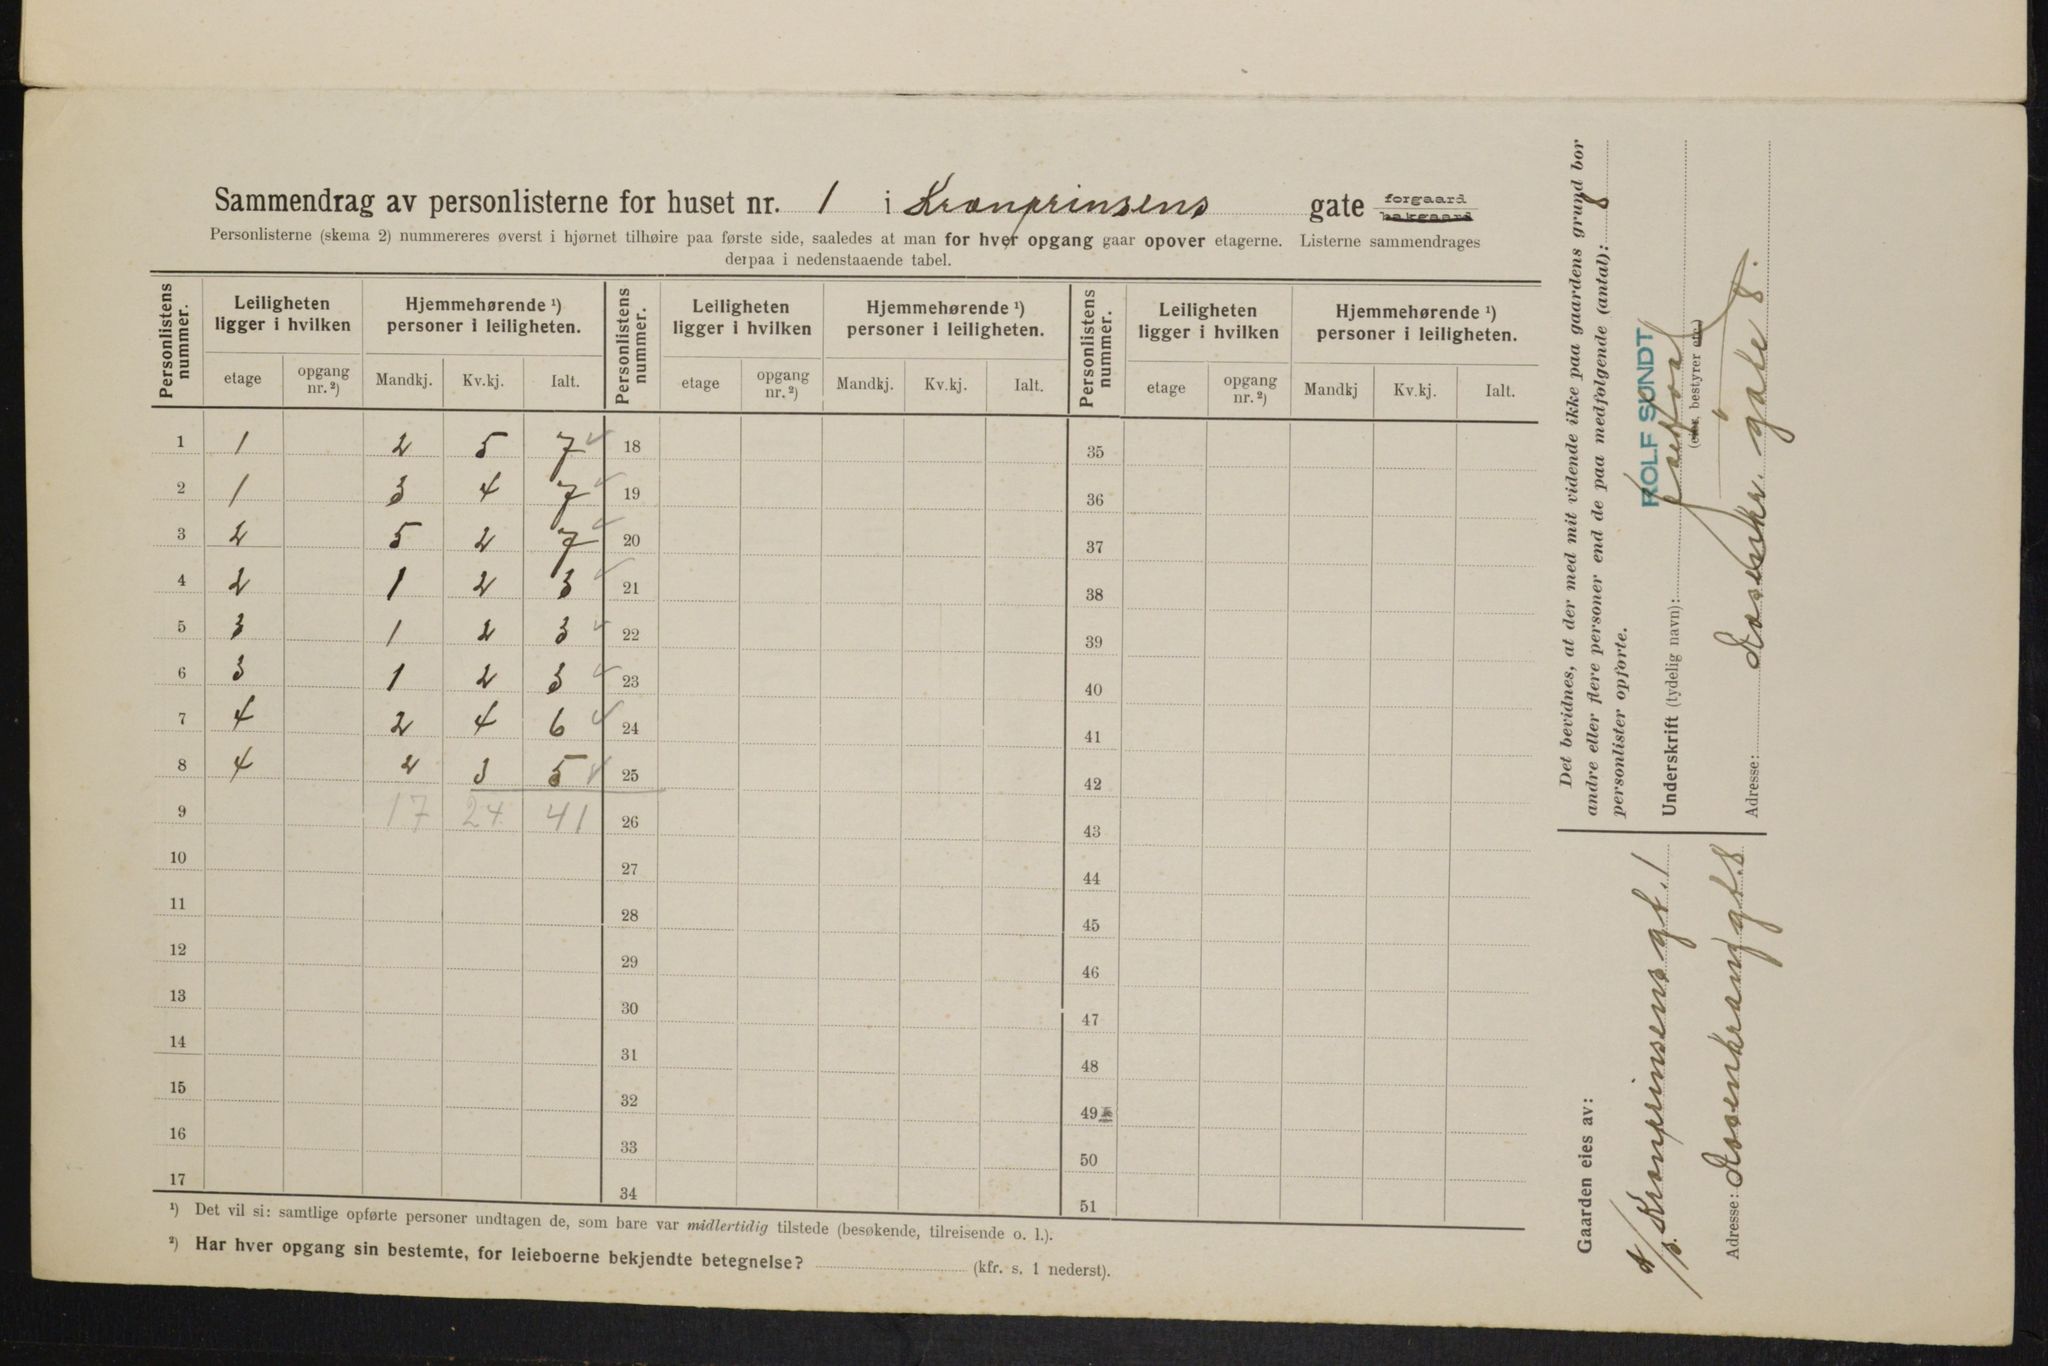 Sammendrag av personlisterne for huset nr. 1 i Kronprinsens gate forgaard
bakgaard
Personlisterne (skema 2) nummereres øverst i hjørnet tilhøire paa første side, saaledes at man for hver opgang gaar opover etagerne. Listerne sammendrages
derpaa i nedenstaaende tabel.
Personlistens nummer. Leiligheten ligger i hvilken Hjemmehørende ¹) personer i leiligheten. Personlistens nummer. Leiligheten ligger i hvilken Hjemmehørende ¹) personer i leiligheten. Personlistens nummer. Leiligheten ligger i hvilken Hjemmehørende ¹) personer i leiligheten.
etage opgang nr. ²) Mandkj. Kv.kj. Ialt. etage opgang nr. ²) Mandkj. Kv.kj. Ialt. etage opgang nr. ²) Mandkj Kv.kj. Ialt.
1 1 2 5 7 18 35
2 1 3 4 7 19 36
3 2 5 2 7 20 37
4 2 1 2 3 21 38
5 3 1 2 3 22 39
6 3 1 2 3 23 40
7 4 2 4 6 24 41
8 4 2 3 5 25 42
9 17 24 41 26 43
10 27 44
11 28 45
12 29 46
13 30 47
14 31 48
15 32 49
16 33 50
17 34 51
¹) Det vil si: samtlige opførte personer undtagen de, som bare var midlertidig tilstede (besøkende, tilreisende o. l.).
²) Har hver opgang sin bestemte, for leieboerne bekjendte betegnelse? (kfr. s. 1 nederst).
Det bevidnes, at der med mit vidende ikke paa gaardens grund bor
andre eller flere personer end de paa medfølgende (antal): 8
personlister opførte.
ROLF SUNDT
Underskrift (tydelig navn):
(eier, bestyrer etc.)
Adresse: Rosenkr. gate 8.
Gaarden eies av:
A/S. Kronprinsens gt. 1
Adresse: Rosenkrantzgt. 8